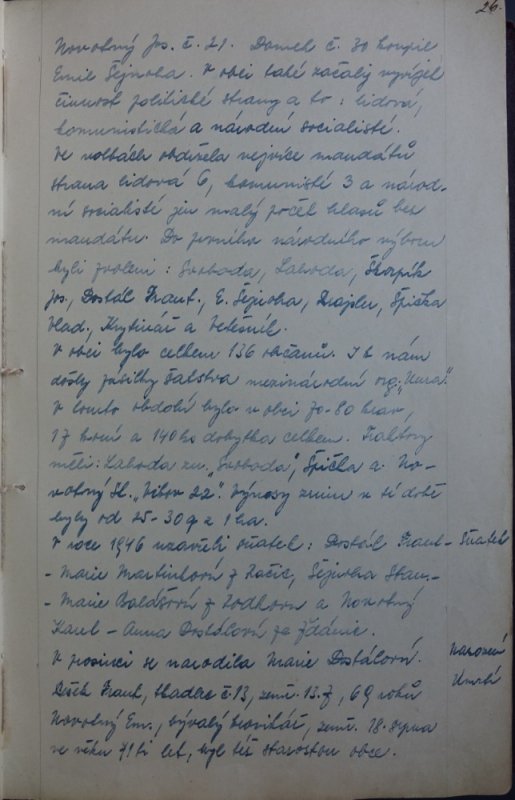 26.
Novotný Jos. č. 21. Domek č. 30 koupil
Emil Šejnoha. V obci také začaly vyvíjet
činnost politické strany a to: lidová,
komunistická a národní socialisté.
Ve volbách obdržela nejvíce mandátů
strana lidová 6, komunisté 3 a národ-
ní socialisté jen malý počet hlasů bez
mandátu. Do prvního národního výboru
byli zvoleni: Svoboda, Lahoda, Škorpík
Jos., Dostál Frant., E. Šejnoha, Drajsler, Špička
Vlad., Krytinář a Vetešník.
V obci bylo celkem 136 občanů. I k nám
došly zásilky šatstva mezinárodní org. "Unra".
V tomto období bylo v obci 70-80 krav,
17 koní a 140 ks dobytka celkem. Traktory
měli: Lahoda zn. "Svoboda", Špička a No-
votný Sl. "Wikov 22". Výnosy zrnin v té době
byly od 25-30 q z 1 ha.
V roce 1946 uzavřeli sňatek: Dostál Frant- Sňatek
- Marie Martinková z Račic, Šejnoha Stan.-
- Marie Balášová z a Novotný
Karel - Anna Dostálová ze Ždánic.
V prosinci se narodila Marie Dostálová. Narození
Frant, tkadlec č. 13, zemř. 13.7, 69 roků Úmrtí
Novotný Em., bývalý kovář, zemř. 18. srpna
ve věku 71ti let, byl též starostou obce.